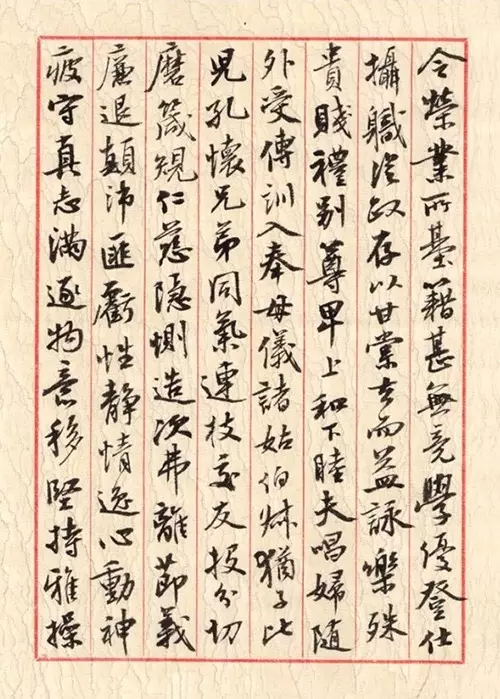 令榮業所基籍甚無竟學優登仕
攝職從政存以甘棠去而益詠樂殊
貴賤禮別尊卑上和下睦夫唱婦隨
外受傅訓入奉母儀諸姑伯叔猶子比
兒孔懷兄弟同氣連枝交友投分切
磨箴規仁慈隱惻造次弗離節義
廉退顛沛匪虧性靜情逸心動神
疲守真志滿逐物意移堅持雅操